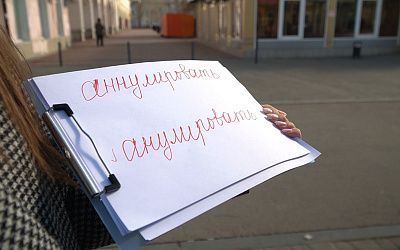 аннулировать
анулировать